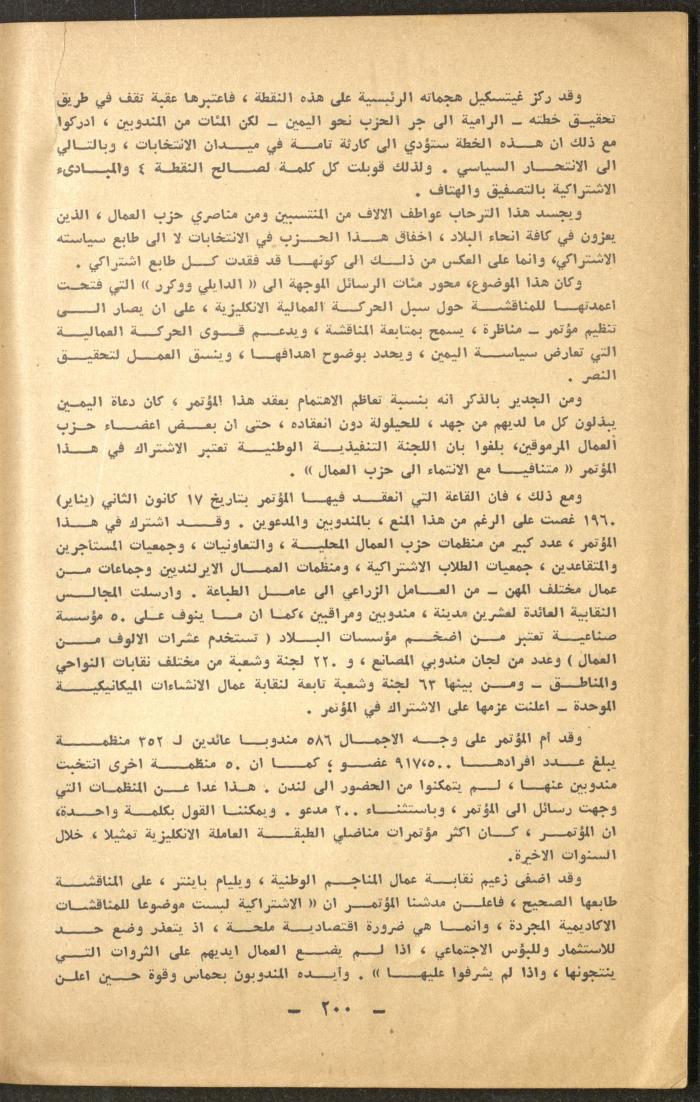 وقد ركز غيتسكيل هجماته الرئيسية على هذه النقطة ، فاعتبرها عقبة تقف في طريق
تحقيق خطته – الرامية الى جر الحزب نحو اليمين – لكن المئات من المندوبين ، ادركوا
مع ذلك ان هذه الخطة ستؤدي الى كارثة تامة في ميدان الانتخابات ، وبالتالي
الى الانتحار السياسي . ولذلك قوبلت كل كلمة لصالح النقطة ٤ والمبادىء
الاشتراكية بالتصفيق والهتاف .
ويجسد هذا الترحاب عواطف الالاف من المنتسبين ومن مناصري حزب العمال ، الذين
يعزون في كافة انحاء البلاد ، اخفاق هذا الحزب في الانتخابات لا الى طابع سياسته
الاشتراكي، وانما على العكس من ذلك الى كونها قد فقدت كل طابع اشتراكي .
وكان هذا الموضوع، محور مئات الرسائل الموجهة الى « الدايلي ووكرر » التي فتحت
اعمدتها للمناقشة حول سبل الحركة العمالية الانكليزية ، على ان يصار الى
تنظيم مؤتمر – مناظرة ، يسمح بمتابعة المناقشة ، ويدعم قوى الحركة العمالية
التي تعارض سياسة اليمين ، ويحدد بوضوح اهدافها ، وينسق العمل لتحقيق
النصر .
ومن الجدير بالذكر انه بنسبة تعاظم الاهتمام بعقد هذا المؤتمر ، كان دعاة اليمين
يبذلون كل ما لديهم من جهد ، للحيلولة دون انعقاده ، حتى ان بعض اعضاء حزب
العمال المرموقين، بلغوا بان اللجنة التنفيذية الوطنية تعتبر الاشتراك في هذا
المؤتمر « متنافيا مع الانتماء الى حزب العمال » .
ومع ذلك ، فان القاعة التي انعقد فيها المؤتمر بتاريخ ١٧ كانون الثاني (يناير)
١٩٦٠ غصت على الرغم من هذا المنع ، بالمندوبين والمدعوين . وقد اشترك في هذا
المؤتمر ، عدد كبير من منظمات حزب العمال المحلية ، والتعاونيات ، وجمعيات المستأجرين
والمتقاعدين ، جمعيات الطلاب الاشتراكية ، ومنظمات العمال الايرلنديين وجماعات من
عمال مختلف المهن – من العامل الزراعي الى عامل الطباعة . وارسلت المجالس
النقابية العائدة لعشرين مدينة ، مندوبين ومراقبين ،كما ان ما ينوف على ٥٠ مؤسسة
صناعية تعتبر من اضخم مؤسسات البلاد ( تستخدم عشرات الالوف من
العمال ) وعدد من لجان مندوبي المصانع ، و ٢٢٠ لجنة وشعبة من مختلف نقابات النواحي
والمناطق – ومن بينها ٦٣ لجنة وشعبة تابعة لنقابة عمال الانشاءات الميكانيكية
الموحدة – اعلنت عزمها على الاشتراك في المؤتمر .
وقد أم المؤتمر على وجه الاجمال ٥٨٦ مندوبا عائدين لـ ٣٥٢ منظمة
يبلغ عدد افرادها ٩١٧،٥٠٠ عضو ؛ كما ان ٥٠ منظمة اخرى انتخبت
مندوبين عنها ، لم يتمكنوا من الحضور الى لندن . هذا عدا عن المنظمات التي
وجهت رسائل الى المؤتمر ، وباستثناء ٢٠٠ مدعو . ويمكننا القول بكلمة واحدة،
ان المؤتمر ، كان اكثر مؤتمرات مناضلي الطبقة العاملة الانكليزية تمثيلا ، خلال
السنوات الاخيرة.
وقد اضفى زعيم نقابة عمال المناجم الوطنية ، ويليام باينتر ، على المناقشة
طابعها الصحيح ، فاعلن مدشنا المؤتمر ان « الاشتراكية ليست موضوعا للمناقشات
الاكاديمية المجردة ، وانما هي ضرورة اقتصادية ملحة ، اذ يتعذر وضع حد
للاستثمار وللبؤس الاجتماعي ، اذا لم يضع العمال ايديهم على الثروات التي
ينتجونها ، واذا لم يشرفوا عليها » . وأيده المندوبون بحماس وقوة حين اعلن
– ٢٠٠ –